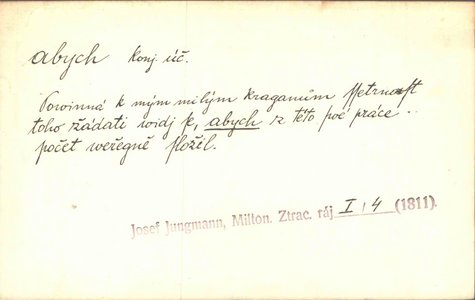 abych konj. úč.
Powinná k mým milým kraganům ssetrnosť
toho žádati widj se, abych z této pré práce ..
počet weřegně složil.
Josef Jungmann, Milton. Ztrac. ráj I, 4 (1811).